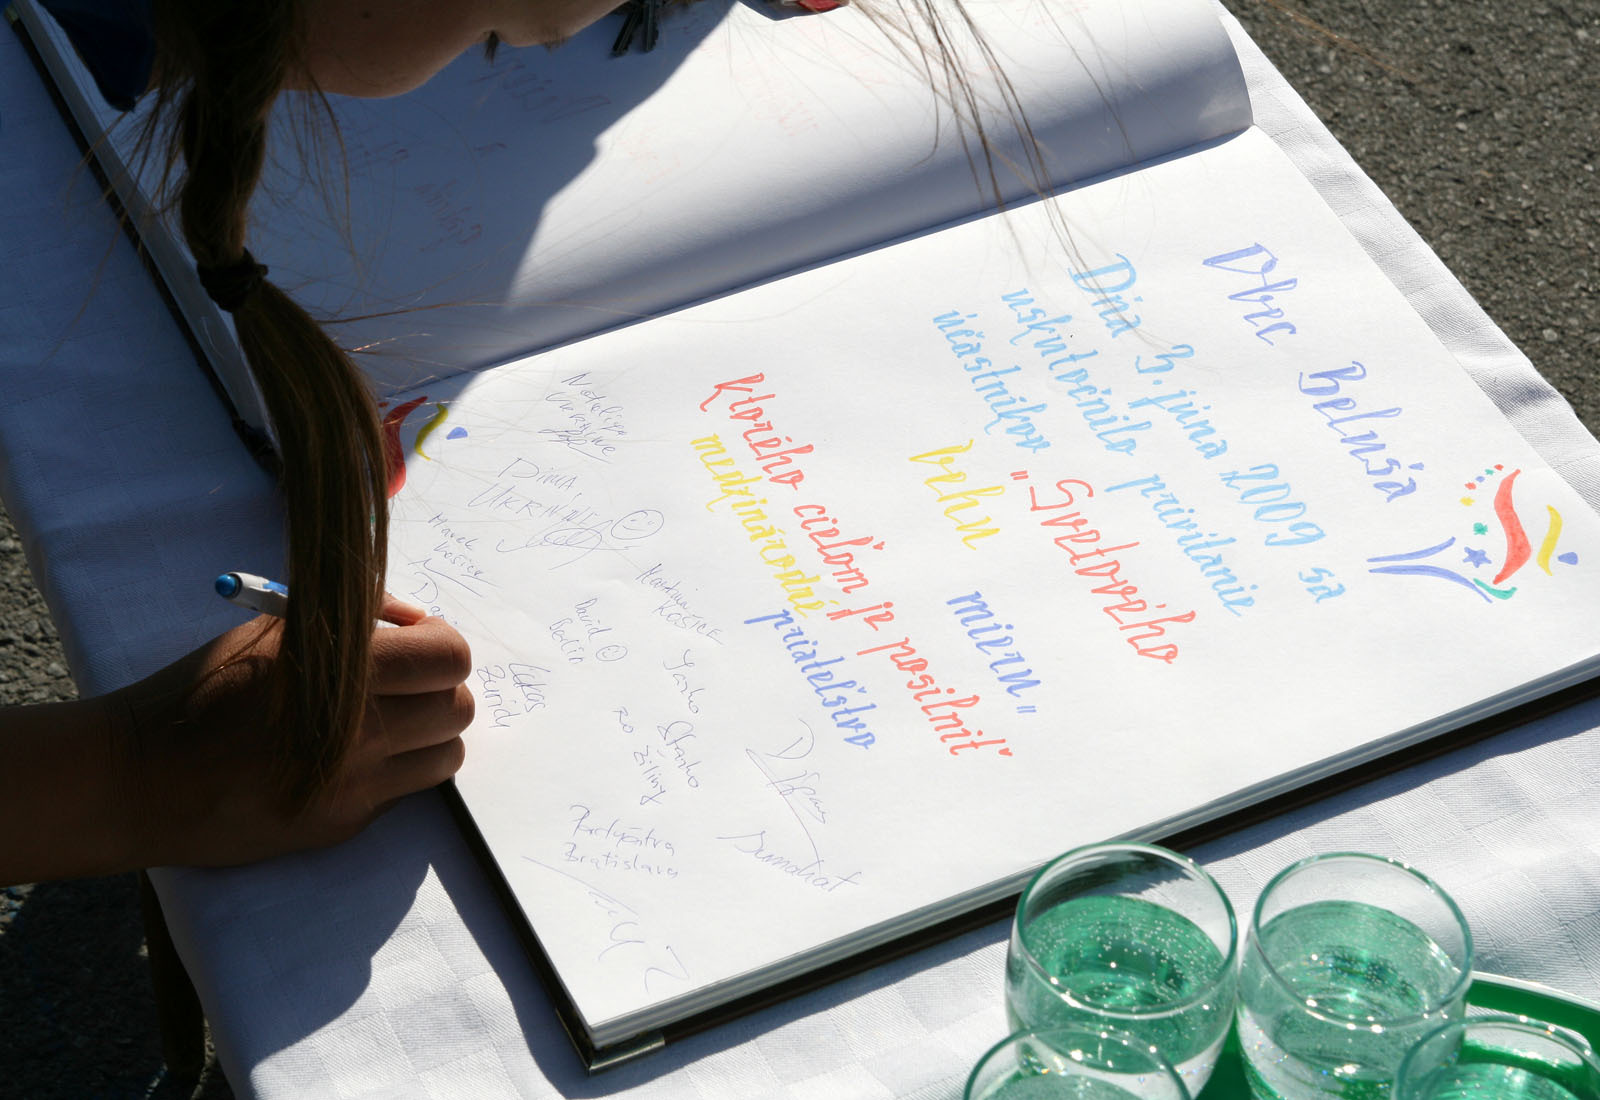 Obec Belušá
Dňa 3. júna 2009 sa
uskutočnilo privítanie
účastníkov "Svetového
behu mieru"
ktorého cieľom je posilniť
medzinárodné priateľstvo
Nataliya
Ukraine
DIMA,
UKRAINE
Marek
Košice
Martina
KOŠICE
David
Berlin
Lukas
Zurich
Janko
Stanko
zo Žiliny
Bratislava